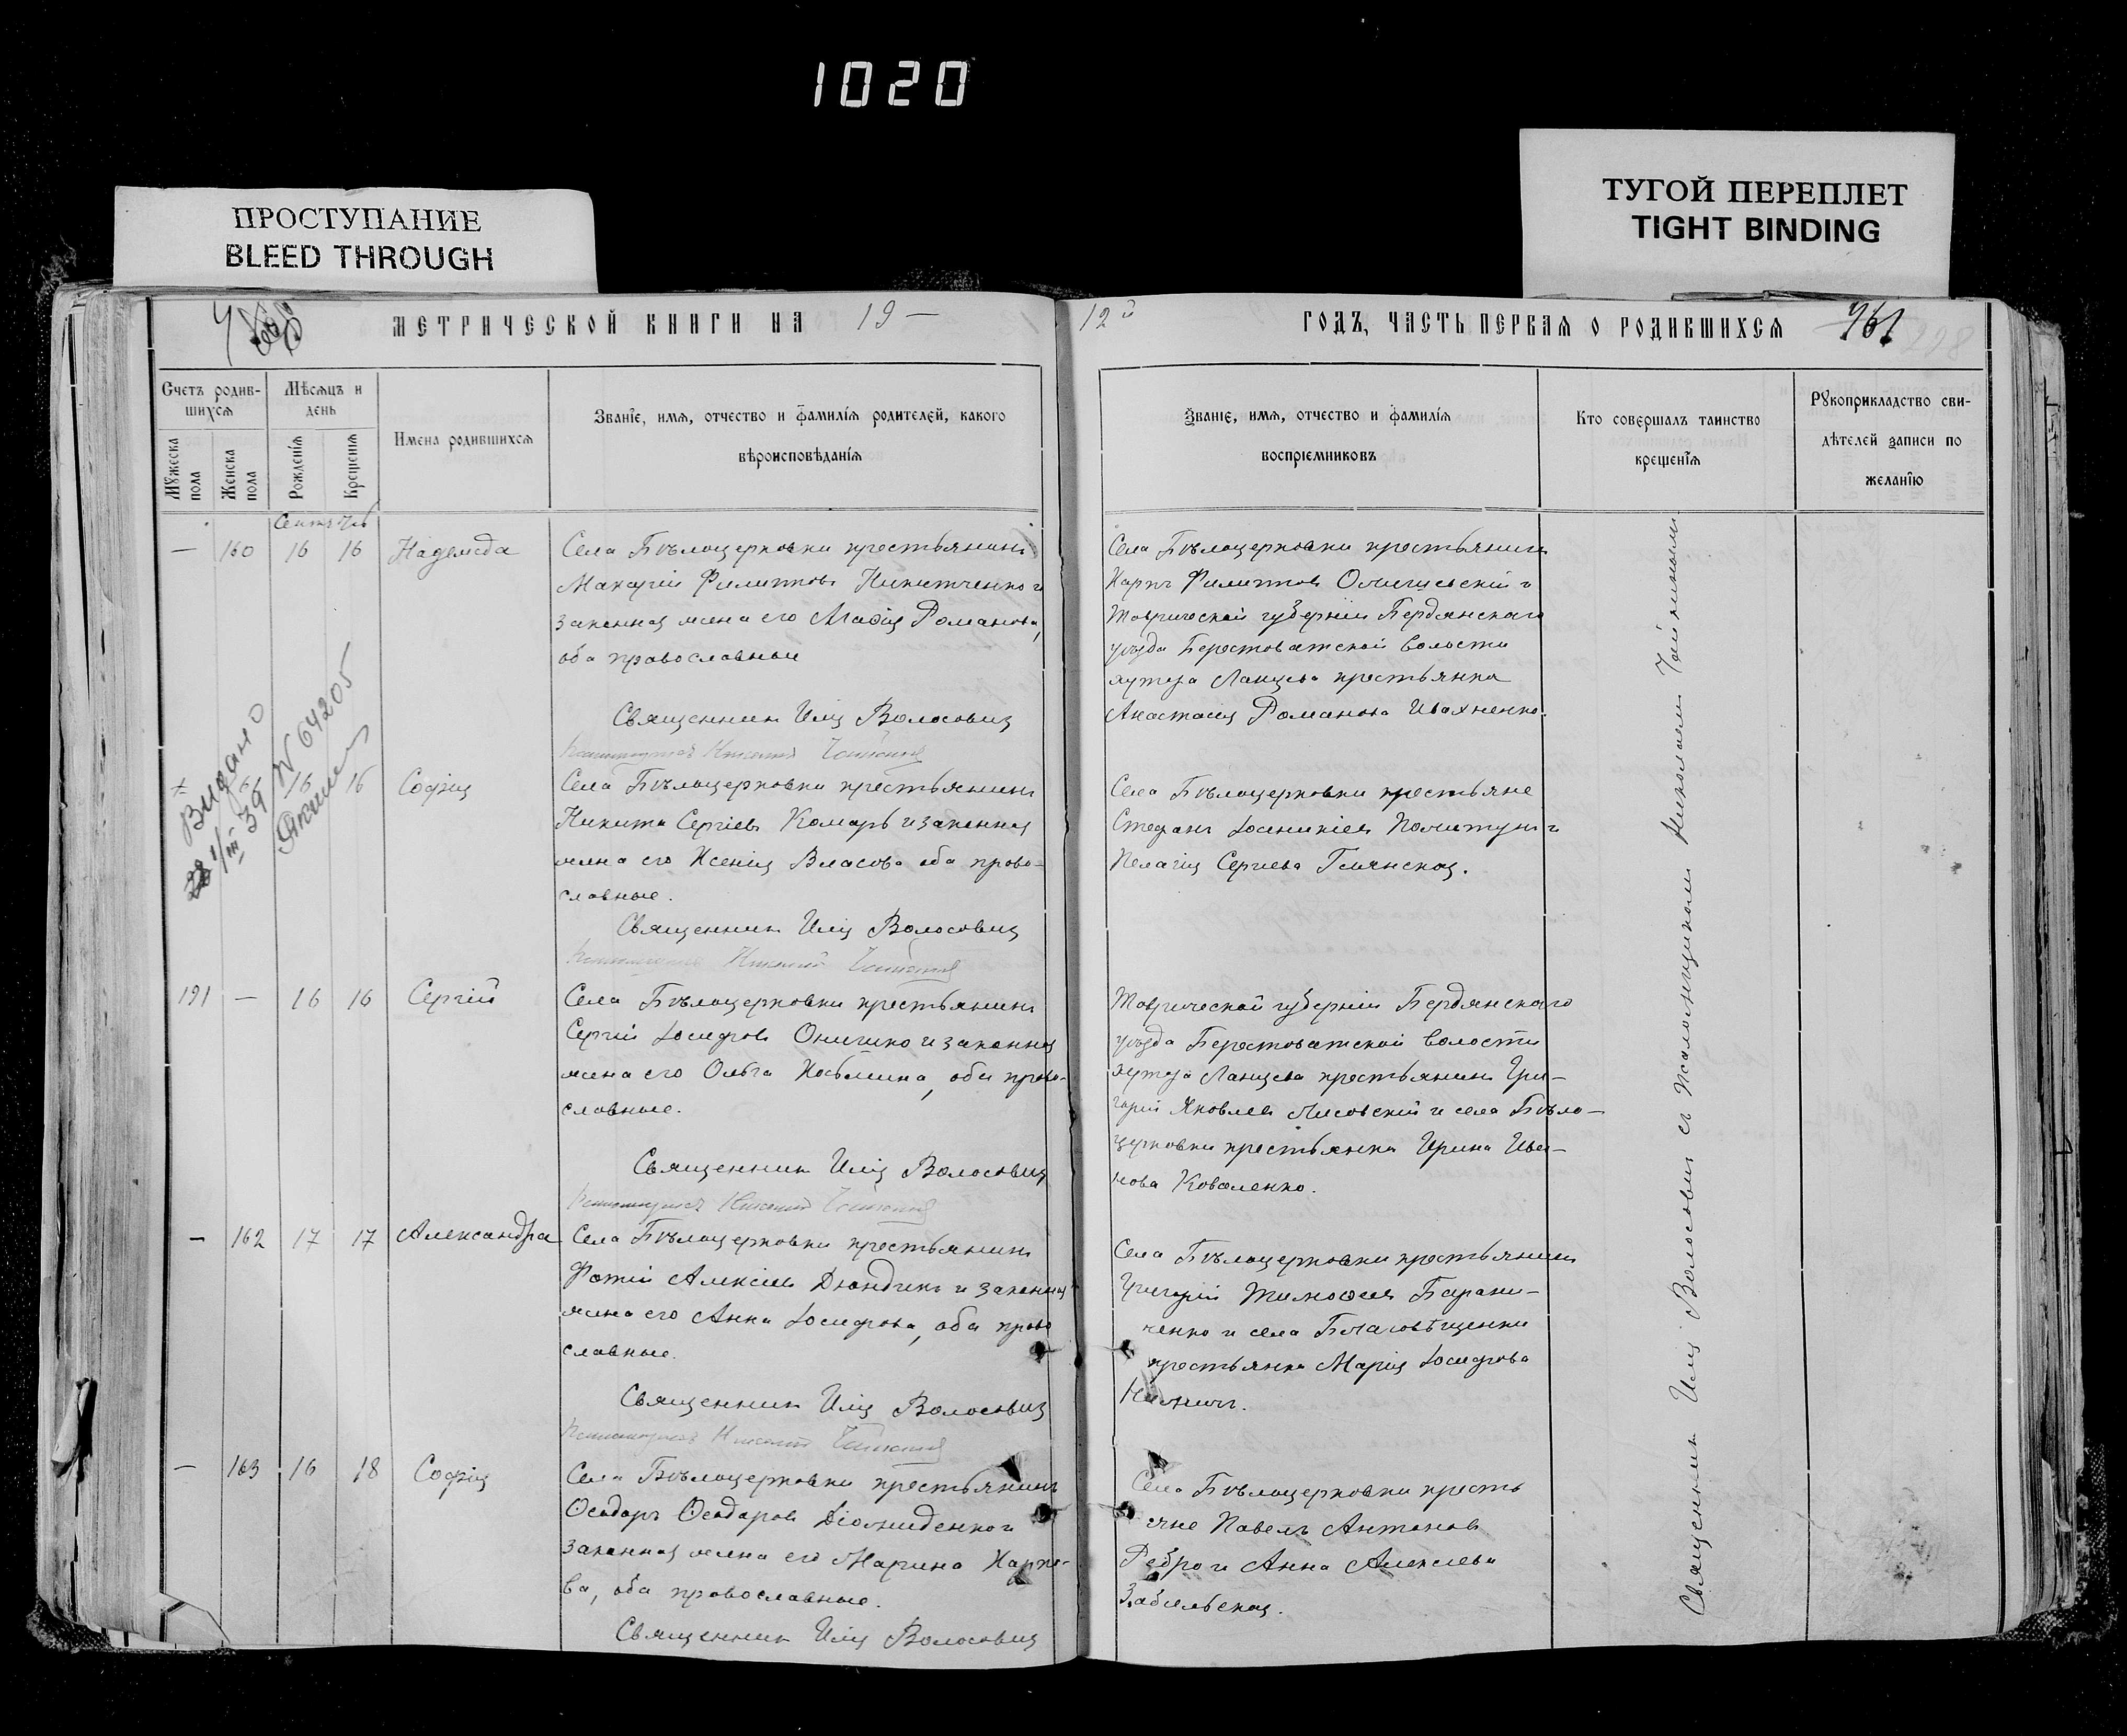 1020
ПРОСТУПАНИЕ
BLEED THROUGH
ТУГОЙ ПЕРЕПЛЕТ
TIGHT BINDING
МЕТРИЧЕСКОЙ КНИГИ НА 19 —
12 ГОДЪ, ЧАСТЬ ПЕРВАЯ О РОДИВШИХСЯ 761
Счетъ родив-
шихся
Мѣсяцъ и
день
Мужеска
пола
Женска
пола
Рожденія
Крещенія
Имена родившихся
Званіе, имя, отчество и фамилія родителей, какого
вѣроисповѣданія
Званіе, имя, отчество и фамилія
воспріемниковъ
Кто совершалъ таинство
крещенія
Рукоприкладство сви-
дѣтелей записи по
желанію
— 160 16 16 Надежда
Села Бѣлоцерковки крестьянинъ
Макарій Филиповъ Никитченко и
законная жена его Агафія Романова,
оба православные
Священникъ Илія Волосовичъ
Села Бѣлоцерковки крестьянинъ
Карпъ Филиповъ и
Таврической губерніи Бердянскаго
уѣзда Берестоватской волости
хутора Ланцева крестьянка
Анастасія Романова Ивахненко.
Видано
1/III 39 N 64205
16 16 Софія
Села Бѣлоцерковки крестьянинъ
Никита Сергіевъ Комаръ и законная
жена его Ксенія Власова оба право-
славные.
Священникъ Илія Волосовичъ
Села Бѣлоцерковки крестьяне
Стефанъ Іоанникіевъ и
Пелагія Сергіева Глянская.
191 — 16 16 Сергій
Села Бѣлоцерковки крестьянинъ
Сергій Іосифовъ Онишко и законная
жена его Ольга Косьмина, оба право-
славные.
Священникъ Илія Волосовичъ
Таврической губерніи Бердянскаго
уѣзда Берестоватской волости
хутора Ланцева крестьянинъ Гри-
горій Яковлевъ Лисовскій и села Бѣло-
церковки крестьянка Ирина Ива-
нова Коваленко.
— 162 17 17 Александра
Села Бѣлоцерковки крестьянинъ
Фотій Алексіевъ Дюндикъ и законная
жена его Анна Іосифова, оба право
славные.
Священникъ Илія Волосовичъ
Села Бѣлоцерковки крестьянинъ
Григорій Тимофеевъ Барани-
ченко и села Благовѣщенки
крестьянка Марія Іосифова
— 163 16 18 Софія
Села Бѣлоцерковки крестьянинъ
Феодоръ Феодоровъ Діомиденко и
законная жена его Марина Карпо-
ва, оба православные.
Священникъ Илія Волосовичъ
Села Бѣлоцерковки кресть
яне Павелъ Антоновъ
Ребро и Анна Алексіева
Забѣльская.
Священникъ Илія Волосовичъ съ псаломщикомъ Николаемъ